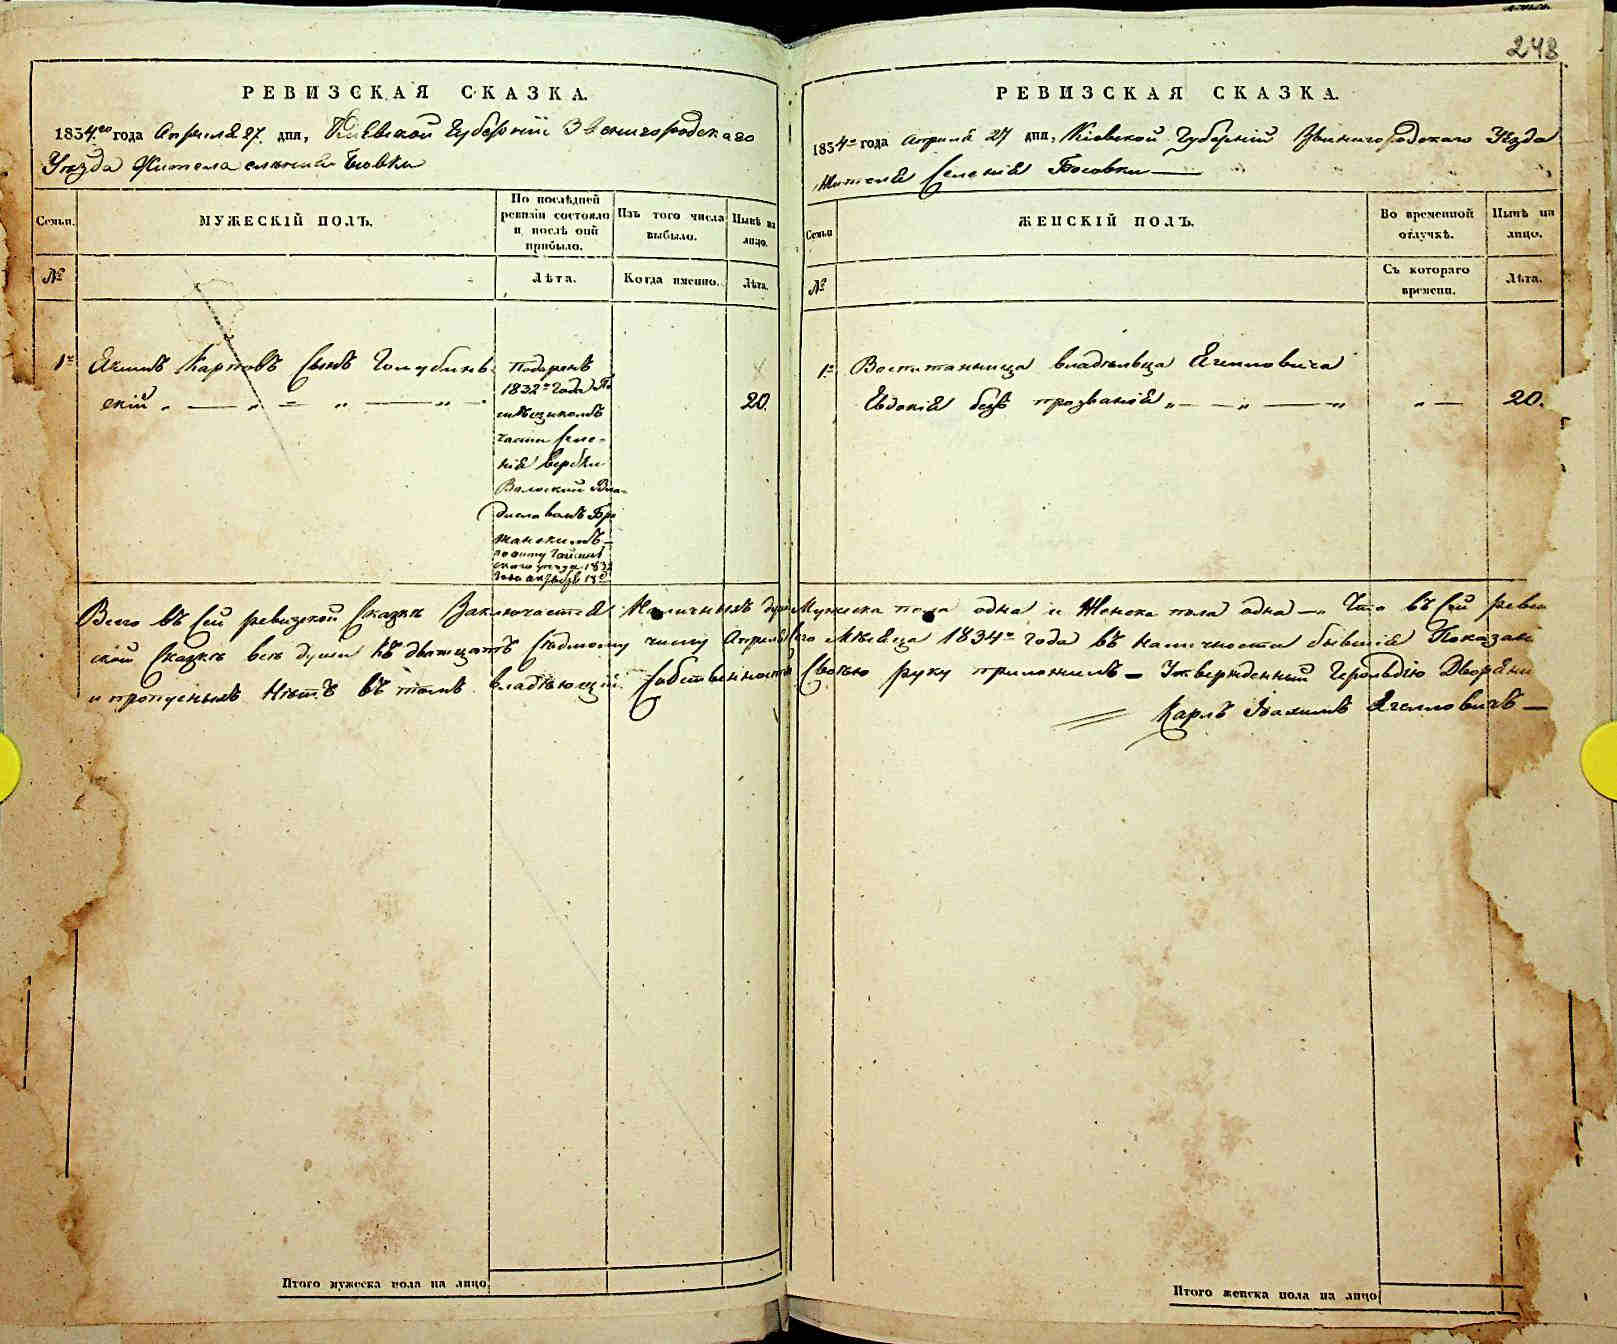 248
РЕВИЗСКАЯ СКАЗКА.
1834го года Апреля 27. дня, Киевской Губернии Звенигородскаго
Уезда Жителя селения Босовки
Семьи.
МУЖЕСКІЙ ПОЛЪ.
По послѣдней ревизіи состояло и послѣ оній прибыло.
Изъ того числа выбыло.
Нынѣ на лицо.
№
Лѣта.
Когда именно.
Лѣта.
1е
Карповъ Сынъ Голубин
скій
20.
Подаренъ
1832го года По
мѣщикомъ
части селе-
нія
Вла-
диславомъ
1832
РЕВИЗСКАЯ СКАЗКА.
1834го года Апреля 27 дня, Кіевской Губерній Звенигородскаго Уезда
Жителя Селенія Босовки
Семьи
ЖЕНСКІЙ ПОЛЪ.
Во временной отлучкѣ.
Нынѣ на лицо.
№
Съ котораго времени.
Лѣта.
1е
Воспитанница владельца Ягелловича
Евдокія безъ прозванія
20.
Всего въ Сей ревизской Сказкѣ Заключается Наличныхъ душъ Мужеска пола одна и Женска пола одна — Что въ Сей ревиз
ской Сказкѣ всѣ души къ двадцать Седьмому числу Апреля Мѣсяца 1834го года въ наличности бывшія Показаны
и пропускныхъ Нѣтъ въ томъ владѣющій Собственность Своею руку приложилъ — Утвержденный Герольдіею Дворянин
Карлъ Ягелловичъ
Итого мужеска пола на лицо
Итого женска пола на лицо